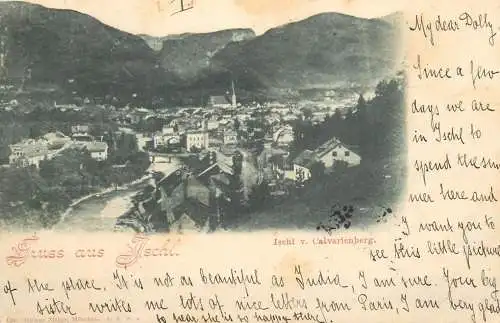 My dear Dolly
Since a few
days we are
in Ischl to
spend the
here and
I want you to
see this little picture
Gruss aus Ischl.
Ischl v. Calvarienberg.
of the place. It is not as beautiful as India, I am sure. Your big
sister writes me lots of nice letters from Paris, I am very glad
to hear she is so happy there.